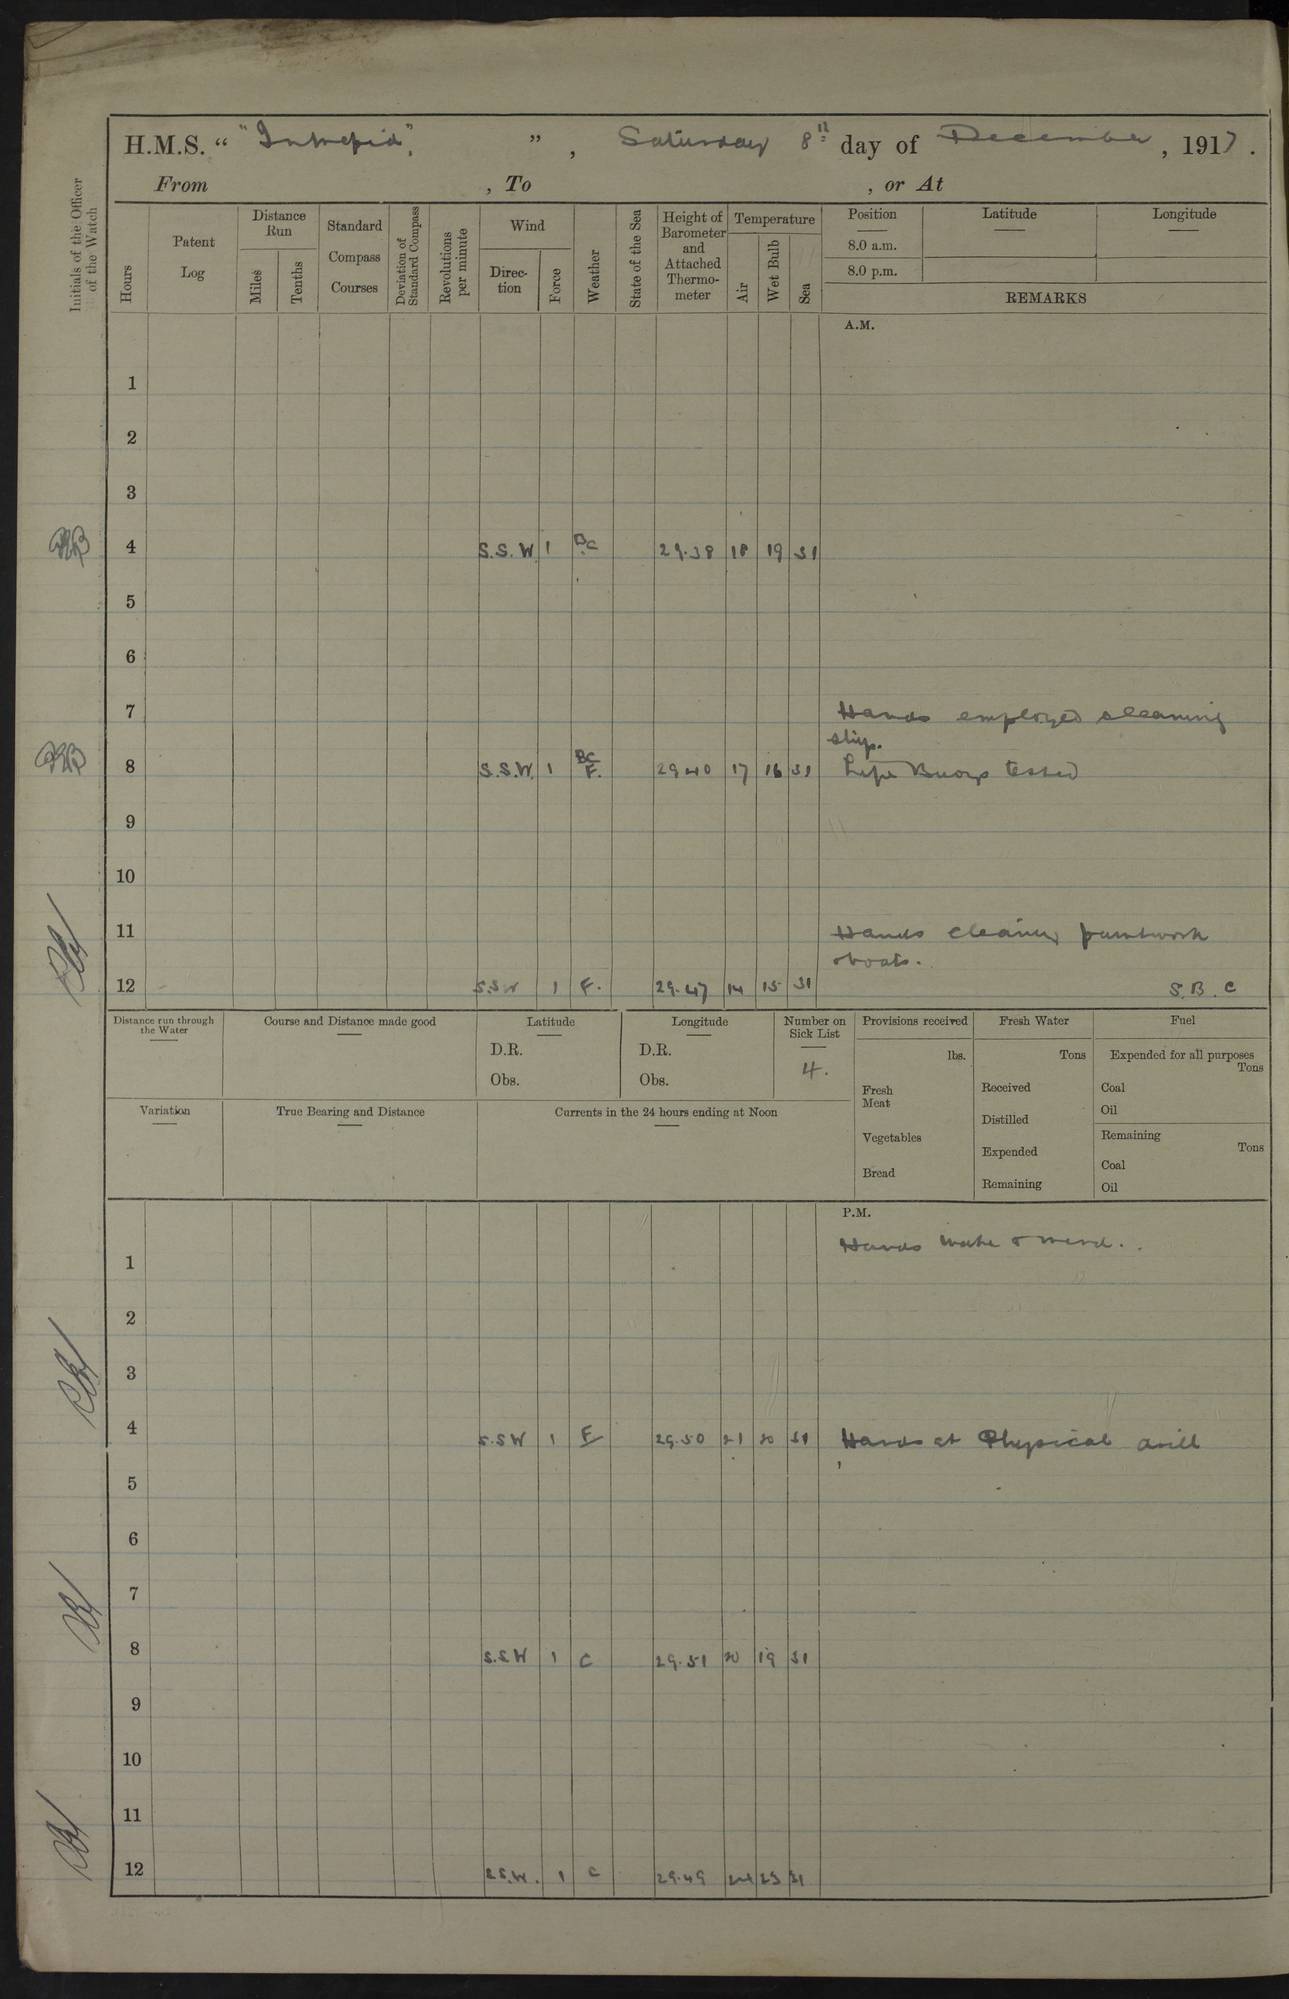 H.M.S. " "Intrepid", " , Saturday 8th day of December , 1917 .
From , To , or At
Initials of the Officer of the Watch
Hours
Patent Log
Distance Run
Miles
Tenths
Standard Compass Courses
Deviation of Standard Compass
Revolutions per minute
Wind
Direc-tion
Force
Weather
State of the Sea
Height of Barometer and Attached Thermo-meter
Temperature
Air
Wet Bulb
Sea
Position
Latitude
Longitude
8.0 a.m.
8.0 p.m.
REMARKS
A.M.
1
2
3
4 S.S.W 1 BC 29.38 18 19 31
5
6
7 Hands employed cleaning
ship.
8 S.S.W. 1 BC F. 29.40 17 16 31 Life Buoys tested
9
10
11 Hands cleaning paintwork
& boats.
12 S.S.W 1 F. 29.47 14 15 31 S.B.C
Distance run through the Water
Course and Distance made good
Latitude
D.R.
Obs.
Longitude
D.R.
Obs.
Number on Sick List
4.
Provisions received
lbs.
Fresh Meat
Vegetables
Bread
Fresh Water
Tons
Received
Distilled
Expended
Remaining
Fuel
Expended for all purposes
Tons
Coal
Oil
Remaining
Tons
Coal
Oil
Variation
True Bearing and Distance
Currents in the 24 hours ending at Noon
P.M.
Hands make & mend.
1
2
3
4 S.SW 1 F 29.50 21 20 31 Hands at Physical drill
5
6
7
8 S.S.W 1 C 29.51 20 19 31
9
10
11
12 S.S.W. 1 C 29.49 24 23 31